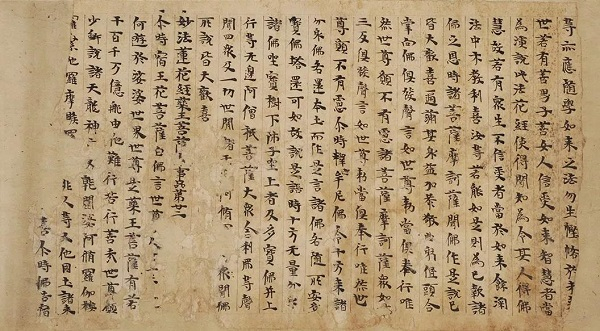 等亦應隨學如来之法勿生慳悋於未
世若有善男子善女人信受如来智慧者當
為演說此法花經使得聞知為令其人得佛
慧故若有衆生不信受者當於如来餘深
法中示教利喜汝等若能如是則為已報諸
佛之恩時諸菩薩摩訶薩聞佛作是說已
皆大歡喜遍滿其身益加恭敬曲躬低頭合
掌向佛俱發聲言如世尊勅當俱奉行唯
然世尊願不有慮諸菩薩摩訶薩衆如是
三反俱發聲言如世尊勅當俱奉行唯然世
尊願不有慮尒時釋迦牟尼佛令十方来諸
分身佛各還本土而作是言諸佛各隨所安多
寶佛塔還可如故說是語時十方无量分身
諸佛坐寶樹下師子坐上者及多寶佛并上
行等无邊阿僧祇菩薩大衆舍利弗等聲
聞四衆及一切世間諸天人阿脩羅聞佛
所說皆大歡喜
妙法蓮花經藥王菩薩本事品第廿三
尒時宿王花菩薩白佛言世尊
何遊於娑婆世界世尊是藥王菩薩有若
干百千万億那由他難行苦行善哉世尊願
少解說諸天龍神叉乾闥婆阿脩羅伽樓
羅緊那羅摩睺羅非人等又他國土諸来
喜尒時佛告宿